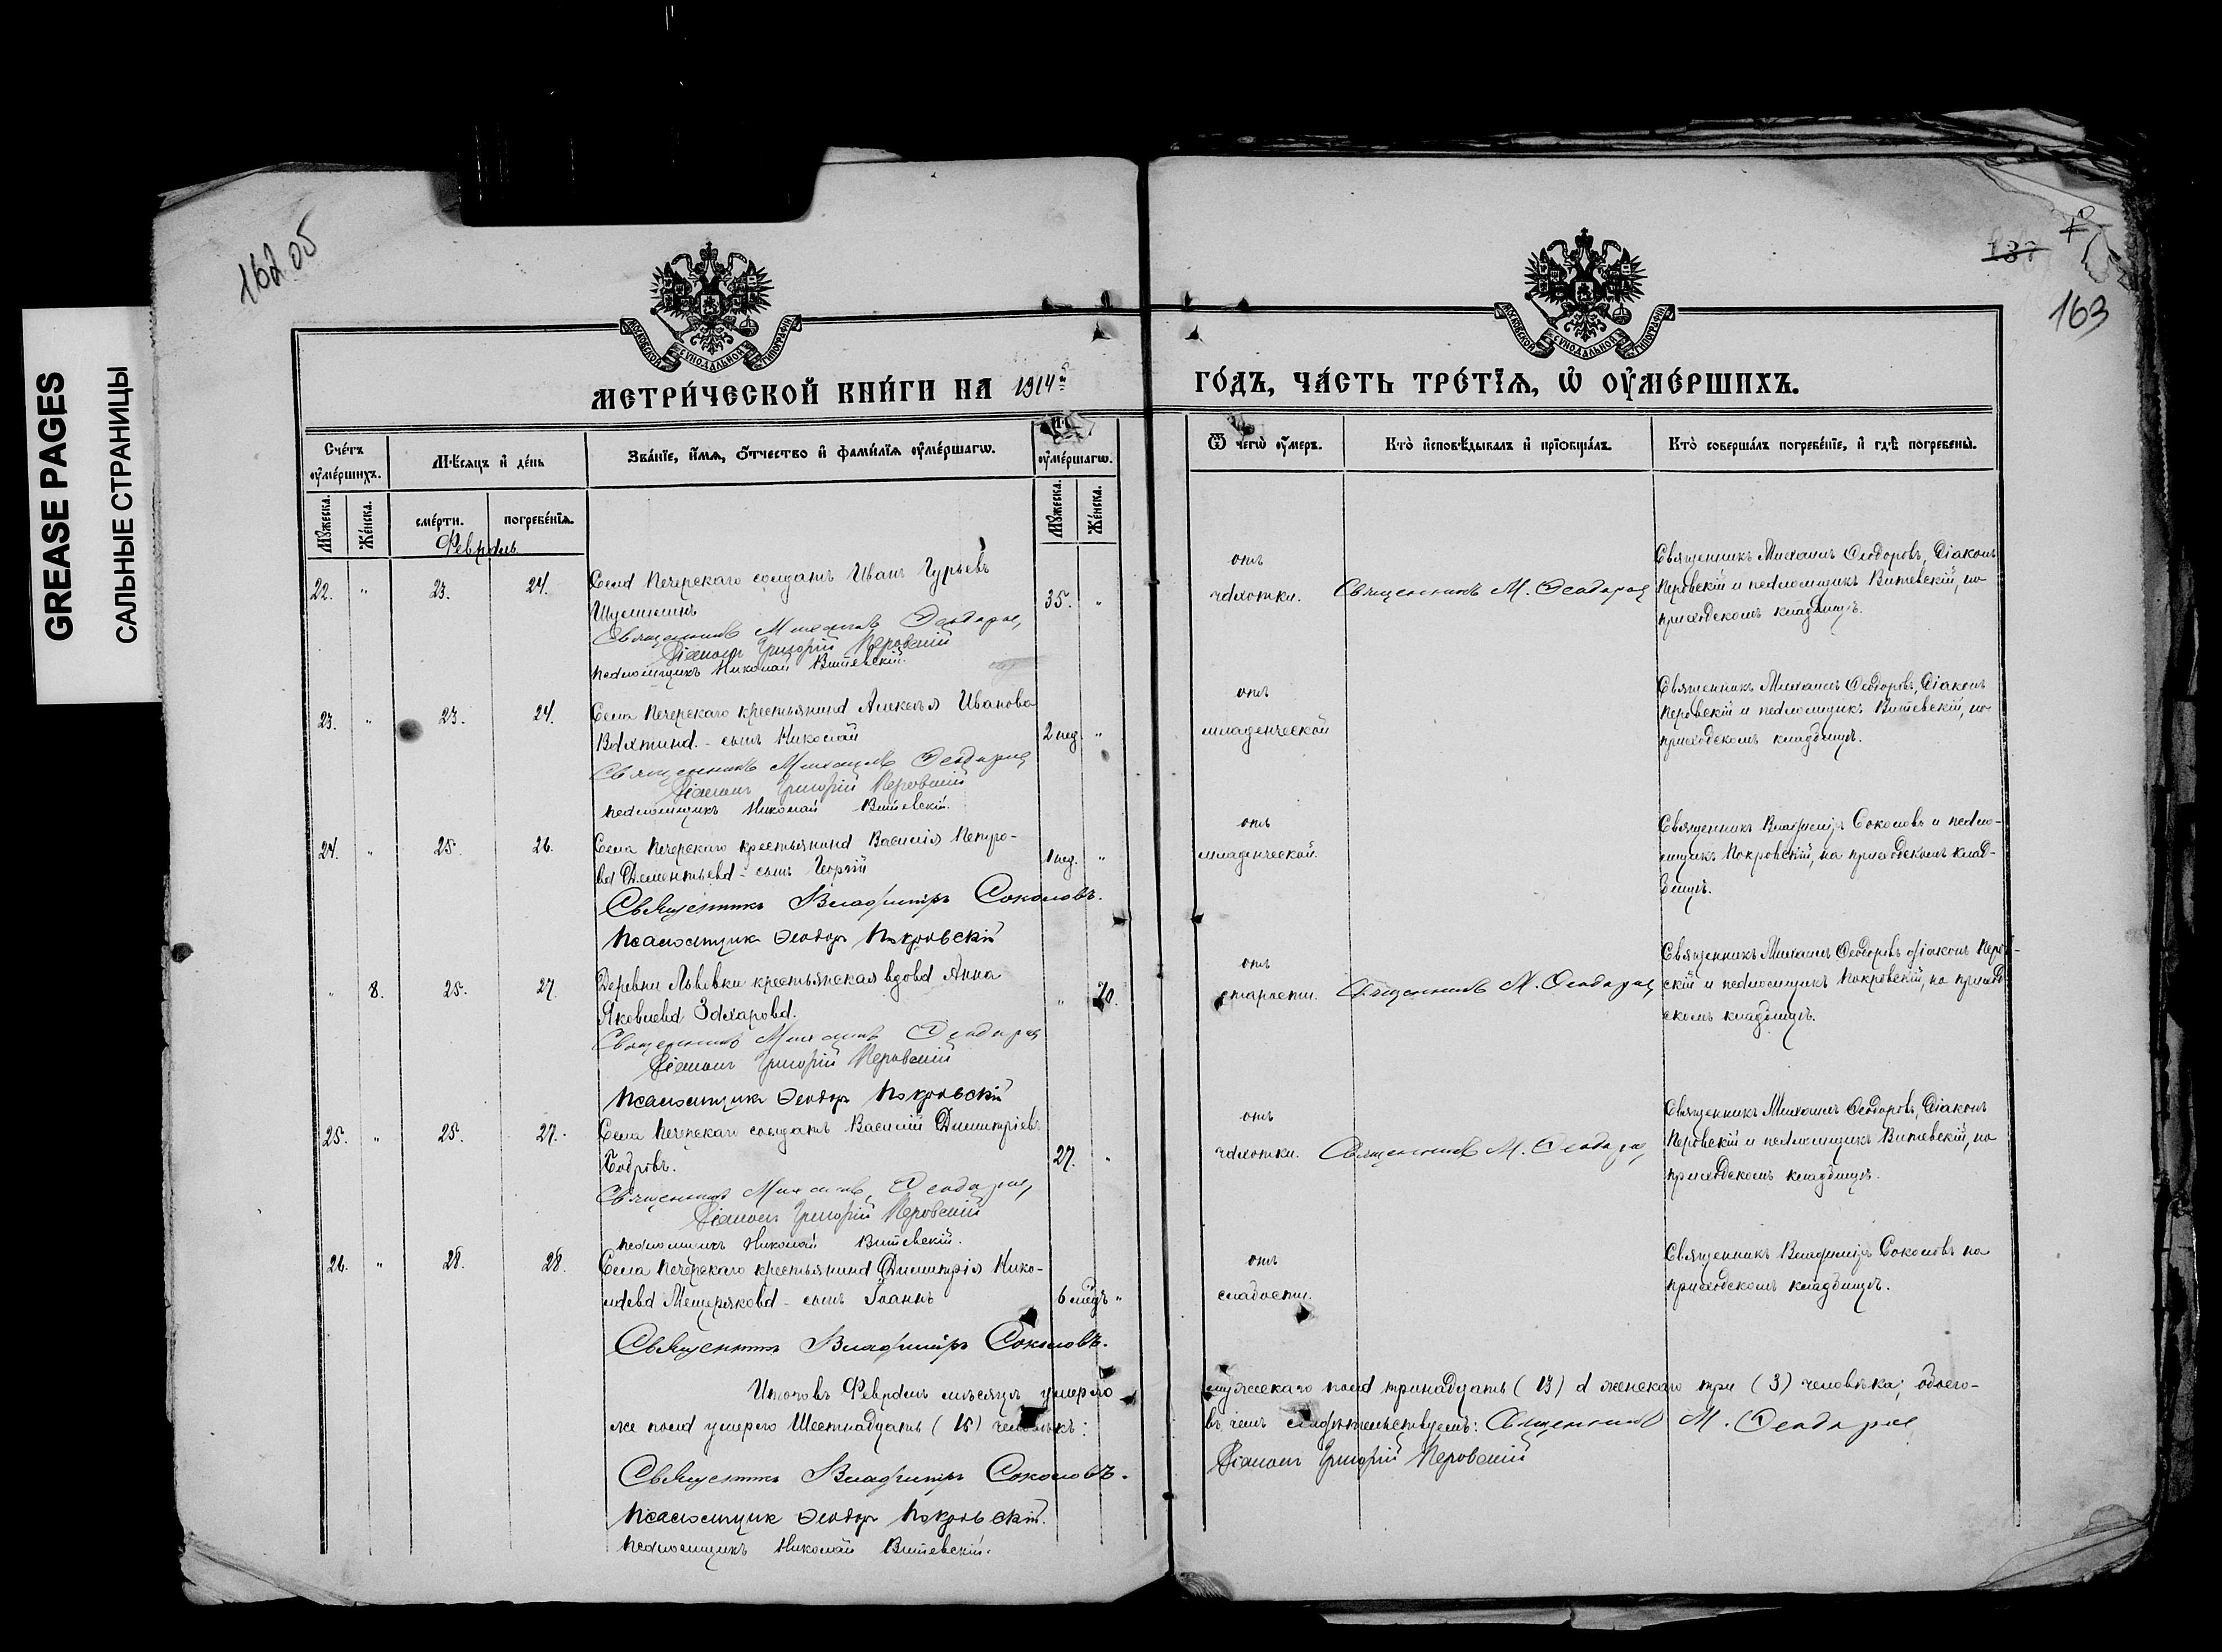 GREASE PAGES
САЛЬНЫЕ СТРАНИЦЫ
162 об
137
163
МОСКОВСКОЙ СѴНОДАЛЬНОЙ ТИПОГРАФІИ
МОСКОВСКОЙ СѴНОДАЛЬНОЙ ТИПОГРАФІИ
МЕТРИ́ЧЕСКОЙ КНИ́ГИ НА 1914й
ГО́ДЪ, ЧА́СТЬ ТРЕ́ТЇѦ, Ѡ҆ ОУ҆МЕ́РШИХЪ.
Сче́тъ оу҆ме́ршихъ.
Мѣ́сяцъ и҆ де́нь
Зва́нїе, и҆́мѧ, ѻ҆́тчество и҆ фами́лїѧ оу҆ме́ршагѡ.
оу҆ме́ршагѡ.
Ѿ чегѡ̀ оу҆́меръ.
Кто̀ и҆сповѣ́дывалъ и҆ прїѡбща́лъ.
Кто̀ соверша́лъ погребе́нїе, и҆ гдѣ̀ погребены̀.
Мꙋ́жеска.
Же́нска.
сме́рти.
погребе́нїѧ.
Мꙋ́жеска.
Же́нска.
Февраль
22. " 23. 24. Села Печерскаго солдатъ Иванъ Гурьевъ
Шулинин
Священникъ Михаилъ Ѳеодоров,
Діаконъ Григорій Перовскій
псаломщикъ Николай Витевскій.
35. "
отъ
чахотки.
Священникъ М. Ѳеодоров
Священникъ Михаилъ Ѳеодоровъ, Діаконъ
Перовскій и псаломщикъ Витевскій, на
приходскомъ кладбищѣ.
23. " 23. 24. Села Печерскаго крестьянина Алексѣя Иванова
Вахтина. - сынъ Николай
Священникъ Михаилъ Ѳеодоров
Діаконъ Григорій Перовскій
псаломщикъ Николай Витевскій.
2 нед. "
отъ
младенческой
Священникъ Михаилъ Ѳеодоровъ, Діаконъ
Перовскій и псаломщикъ Витевскій, на
приходскомъ кладбищѣ.
24. " 25. 26. Села Печерскаго крестьянина Василія Петро-
ва Дементьева - сынъ Георгій
Священникъ Владимиръ Соколовъ.
Псаломщикъ Ѳеодоръ Покровскій
1 нед. "
отъ
младенческой.
Священникъ Владиміръ Соколовъ и псало-
мщикъ Покровскій, на приходскомъ клад-
бищѣ.
" 8. 25. 27. Деревни Львовки крестьянская вдова Анна
Яковлева Захарова.
Священникъ Михаилъ Ѳеодоров
Діаконъ Григорій Перовскій
Псаломщикъ Ѳеодоръ Покровскій
" 70.
отъ
старости.
Священникъ М. Ѳеодоров
Священникъ Михаилъ Ѳеодоровъ діаконъ Перов-
скій и псаломщикъ Покровскій, на приход-
скомъ кладбищѣ.
25. " 25. 27. Села Печерскаго солдатъ Василій Димитріевъ
Бодровъ.
Священникъ Михаилъ Ѳеодоров,
Діаконъ Григорій Перовскій
псаломщикъ Николай Витевскій.
27. "
отъ
чахотки.
Священникъ М. Ѳеодоров
Священникъ Михаилъ Ѳеодоровъ, Діаконъ
Перовскій и псаломщикъ Витевскій, на
приходскомъ кладбищѣ.
26. " 28. 28. Села Печерскаго крестьянина Димитрія Нико-
лаева Мещерякова - сынъ Іоаннъ
Священникъ Владимиръ Соколовъ.
6 "
отъ
слабости.
Священникъ Владиміръ Соколовъ на
приходскомъ кладбищѣ.
Итого въ Февралѣ мѣсяцѣ умерло мужескаго пола тринадцать (13) а женскаго три (3) человѣка, обоего-
же пола умерло Шестнадцать (16) человѣкъ: въ чемъ свидѣтельствуемъ: Священникъ М. Ѳеодоров
Діаконъ Григорій Перовскій
Священникъ Владимиръ Соколовъ.
Псаломщикъ Ѳеодоръ Покровскій.
псаломщикъ Николай Витевскій.